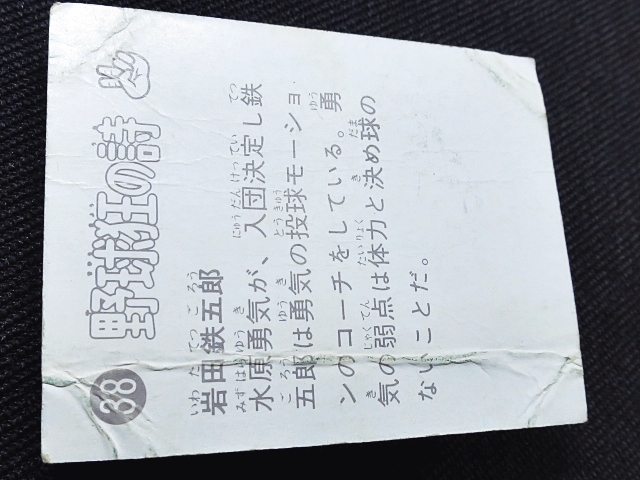 38 野球狂の詩
岩田鉄五郎
水原勇気が、入団決定し鉄
五郎は勇気の投球モーショ
ンのコーチをしている。勇
気の弱点は体力と決め球の
ないことだ。